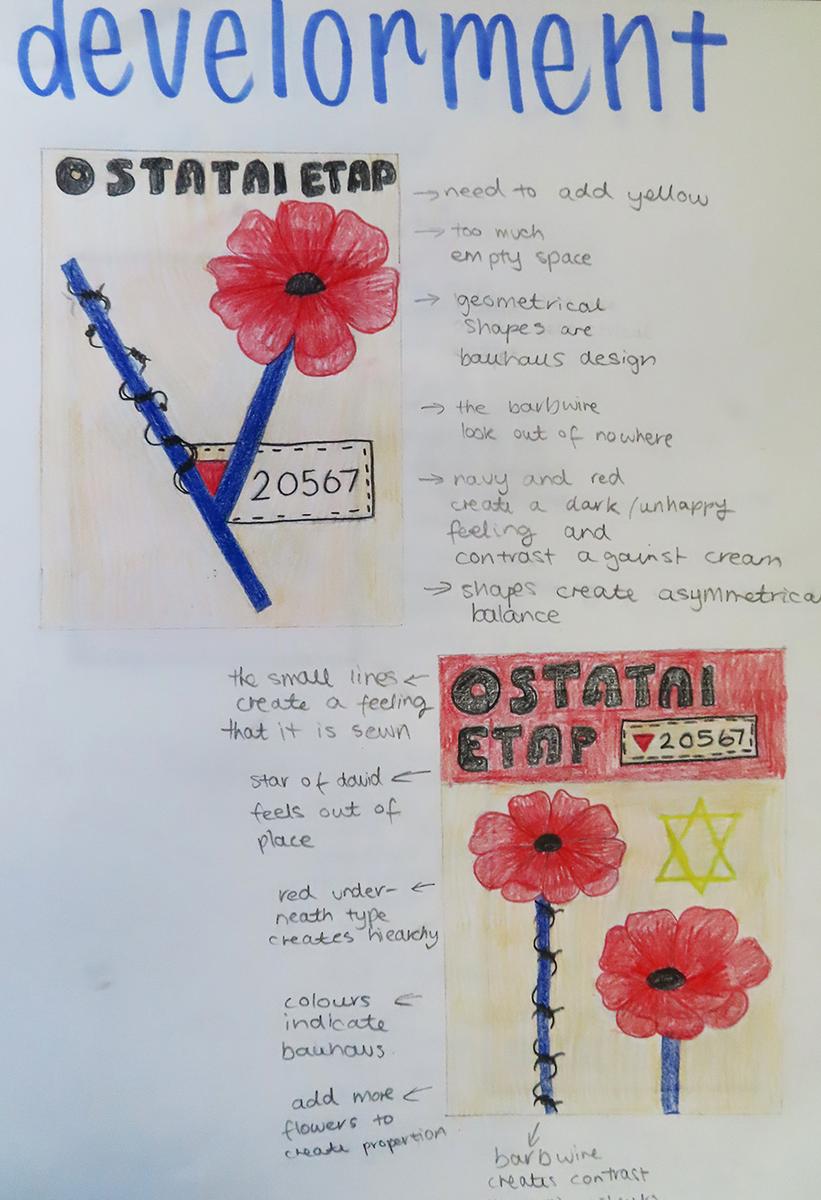 develorment
OSTATNI ETAP
20567
→ need to add yellow
→ too much
empty space
→ geometrical
shapes are
bauhaus design
→ the barbwire
look out of nowhere
→ navy and red
create a dark/unhappy
feeling and
contrast against cream
→ shapes create asymmetrica
balance
OSTATNI
ETAP
20567
the small lines ←
create a feeling
that it is sewn
star of david ←
feels out of
place
red under- ←
neath type
creates hiearchy
colours ←
indicate
bauhaus.
add more ←
flowers to
create proportion
barbwire
creates contrast